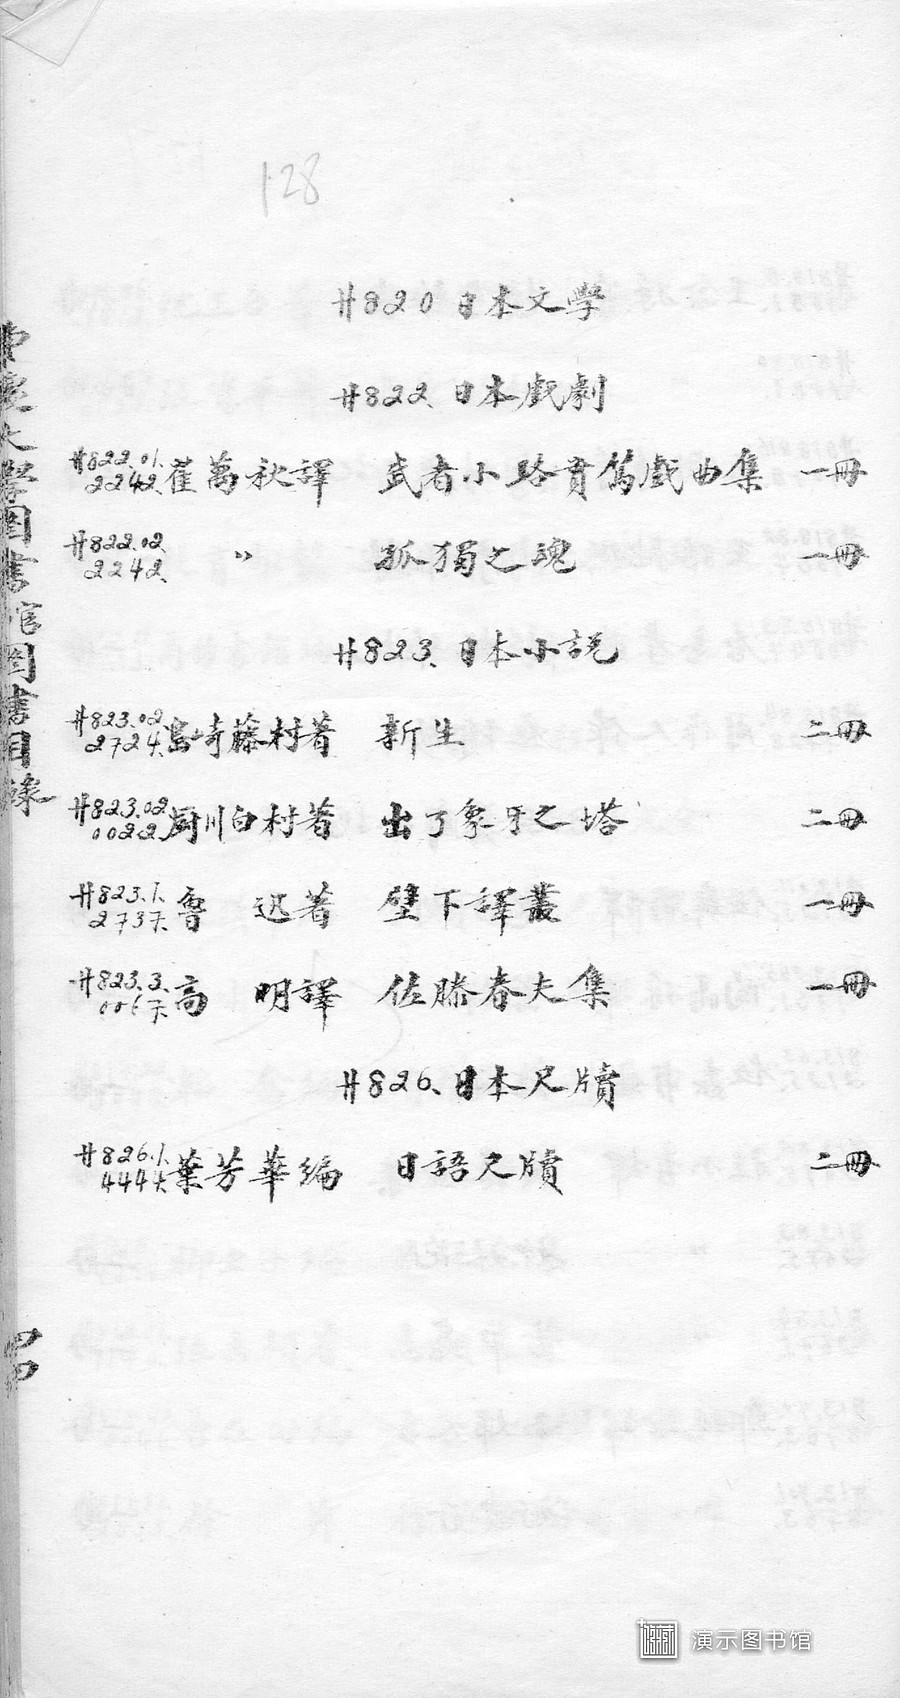 128
廿820日本文學
廿822、日本戲劇
廿822.01. 2242. 崔萬秋譯 武者小路實篤戲曲集 一冊
廿822.02. 2242. 〃 孤獨之魂 一冊
廿823、日本小說
廿823.02 2724. 島崎藤村著 新生 二冊
廿823.02 0022 厨川白村著 出了象牙之塔 二冊
廿823.1. 2737. 魯迅著 壁下譯叢 一冊
廿823.3. 0067. 高明譯 佐滕春夫集 一冊
廿826、日本尺牘
廿826.1. 4444. 葉芳華編 日語尺牘 二冊
大學圖書館圖書目錄
演示图书馆